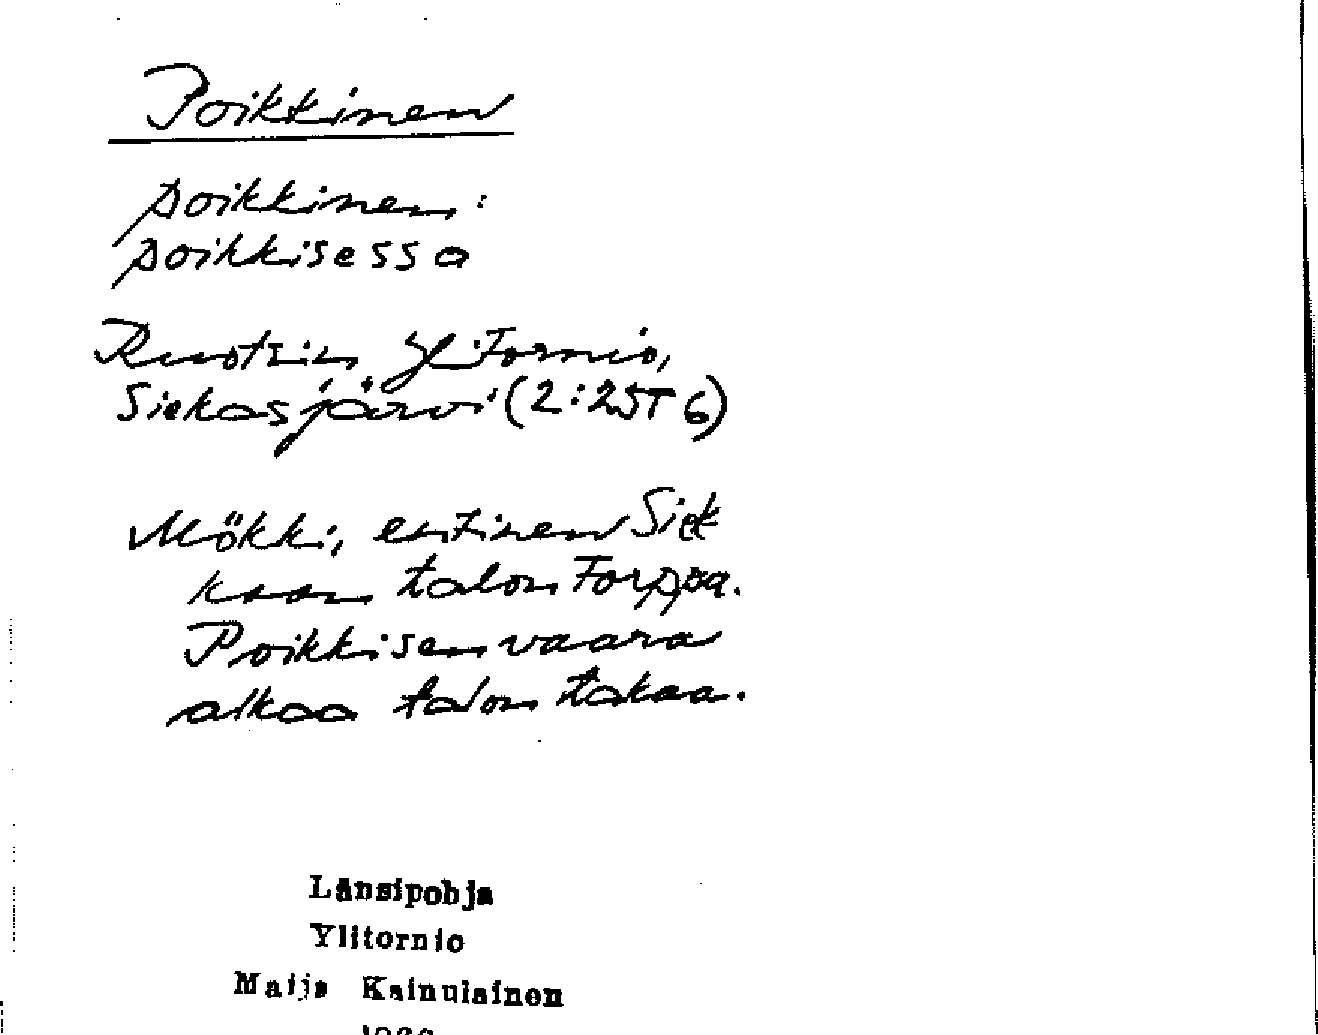 Poikkinen
poikkinen:
poikkisessa
Ruotsin Ylitornio,
Siekasjärvi (2:25T6)
Mökki, entinen Siek
kaan talon torppa.
Poikkisenvaara
alkaa talon takaa.
Länsipohja
Ylitornio
Maija Kainulainen